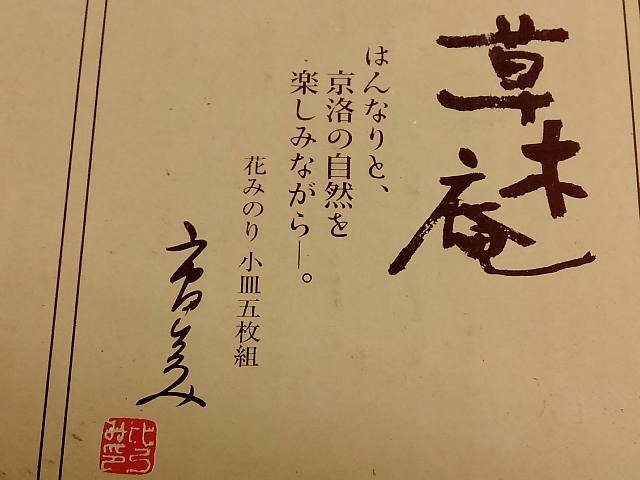 草木庵
はんなりと、
京洛の自然を
楽しみながら―。
花みのり 小皿五枚組